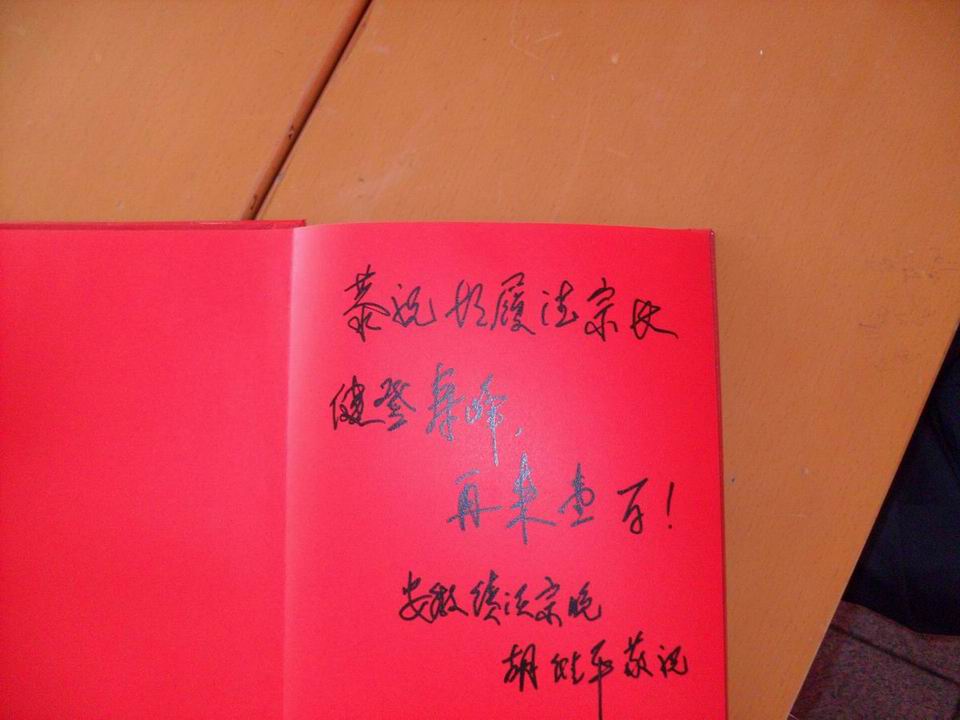 恭祝履法宗长
健登寿峰，
再来壹百！
安徽绩溪宗晚
胡平敬祝